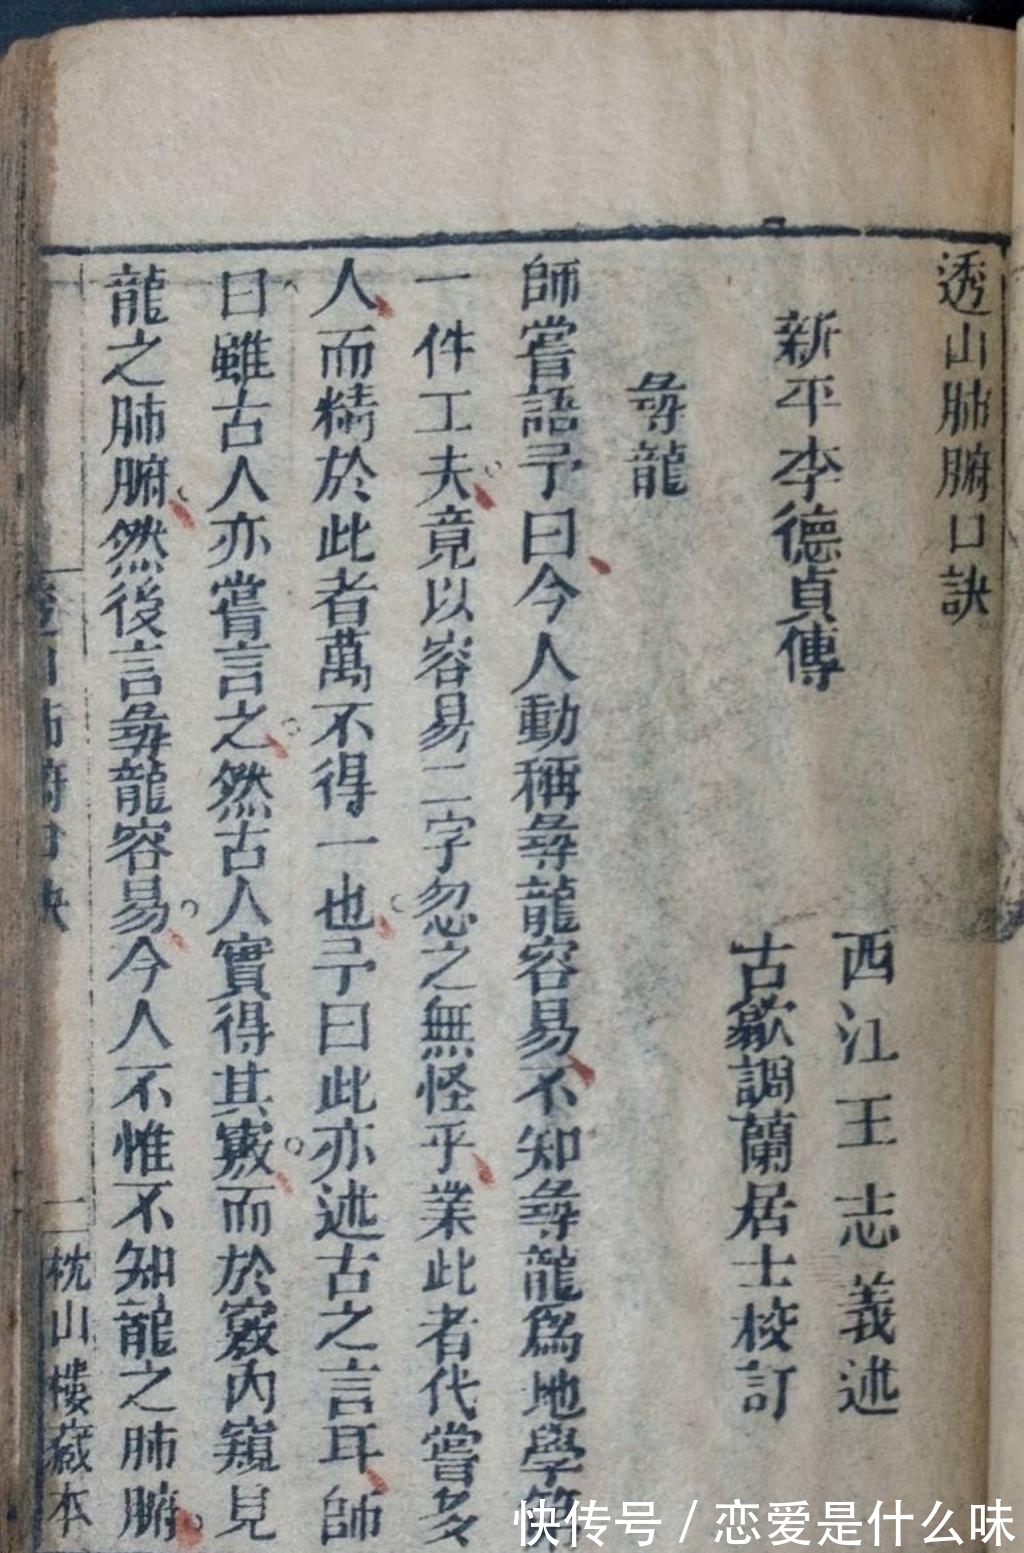 透山肺腑口訣
西江王志義述
新平李德貞傳
古歙調蘭居士校訂
尋龍
師嘗語予曰今人動稱尋龍容易不知尋龍為地學第
一件工夫竟以容易二字忽之無怪乎業此者代嘗多
人而精於此者萬不得一也予曰此亦述古之言耳師
曰雖古人亦嘗言之然古人實得其竅而於竅內窺見
龍之肺腑然後言尋龍容易今人不惟不知龍之肺腑
透山肺腑口訣
二
枕山樓藏本
快传号 / 恋爱是什么味